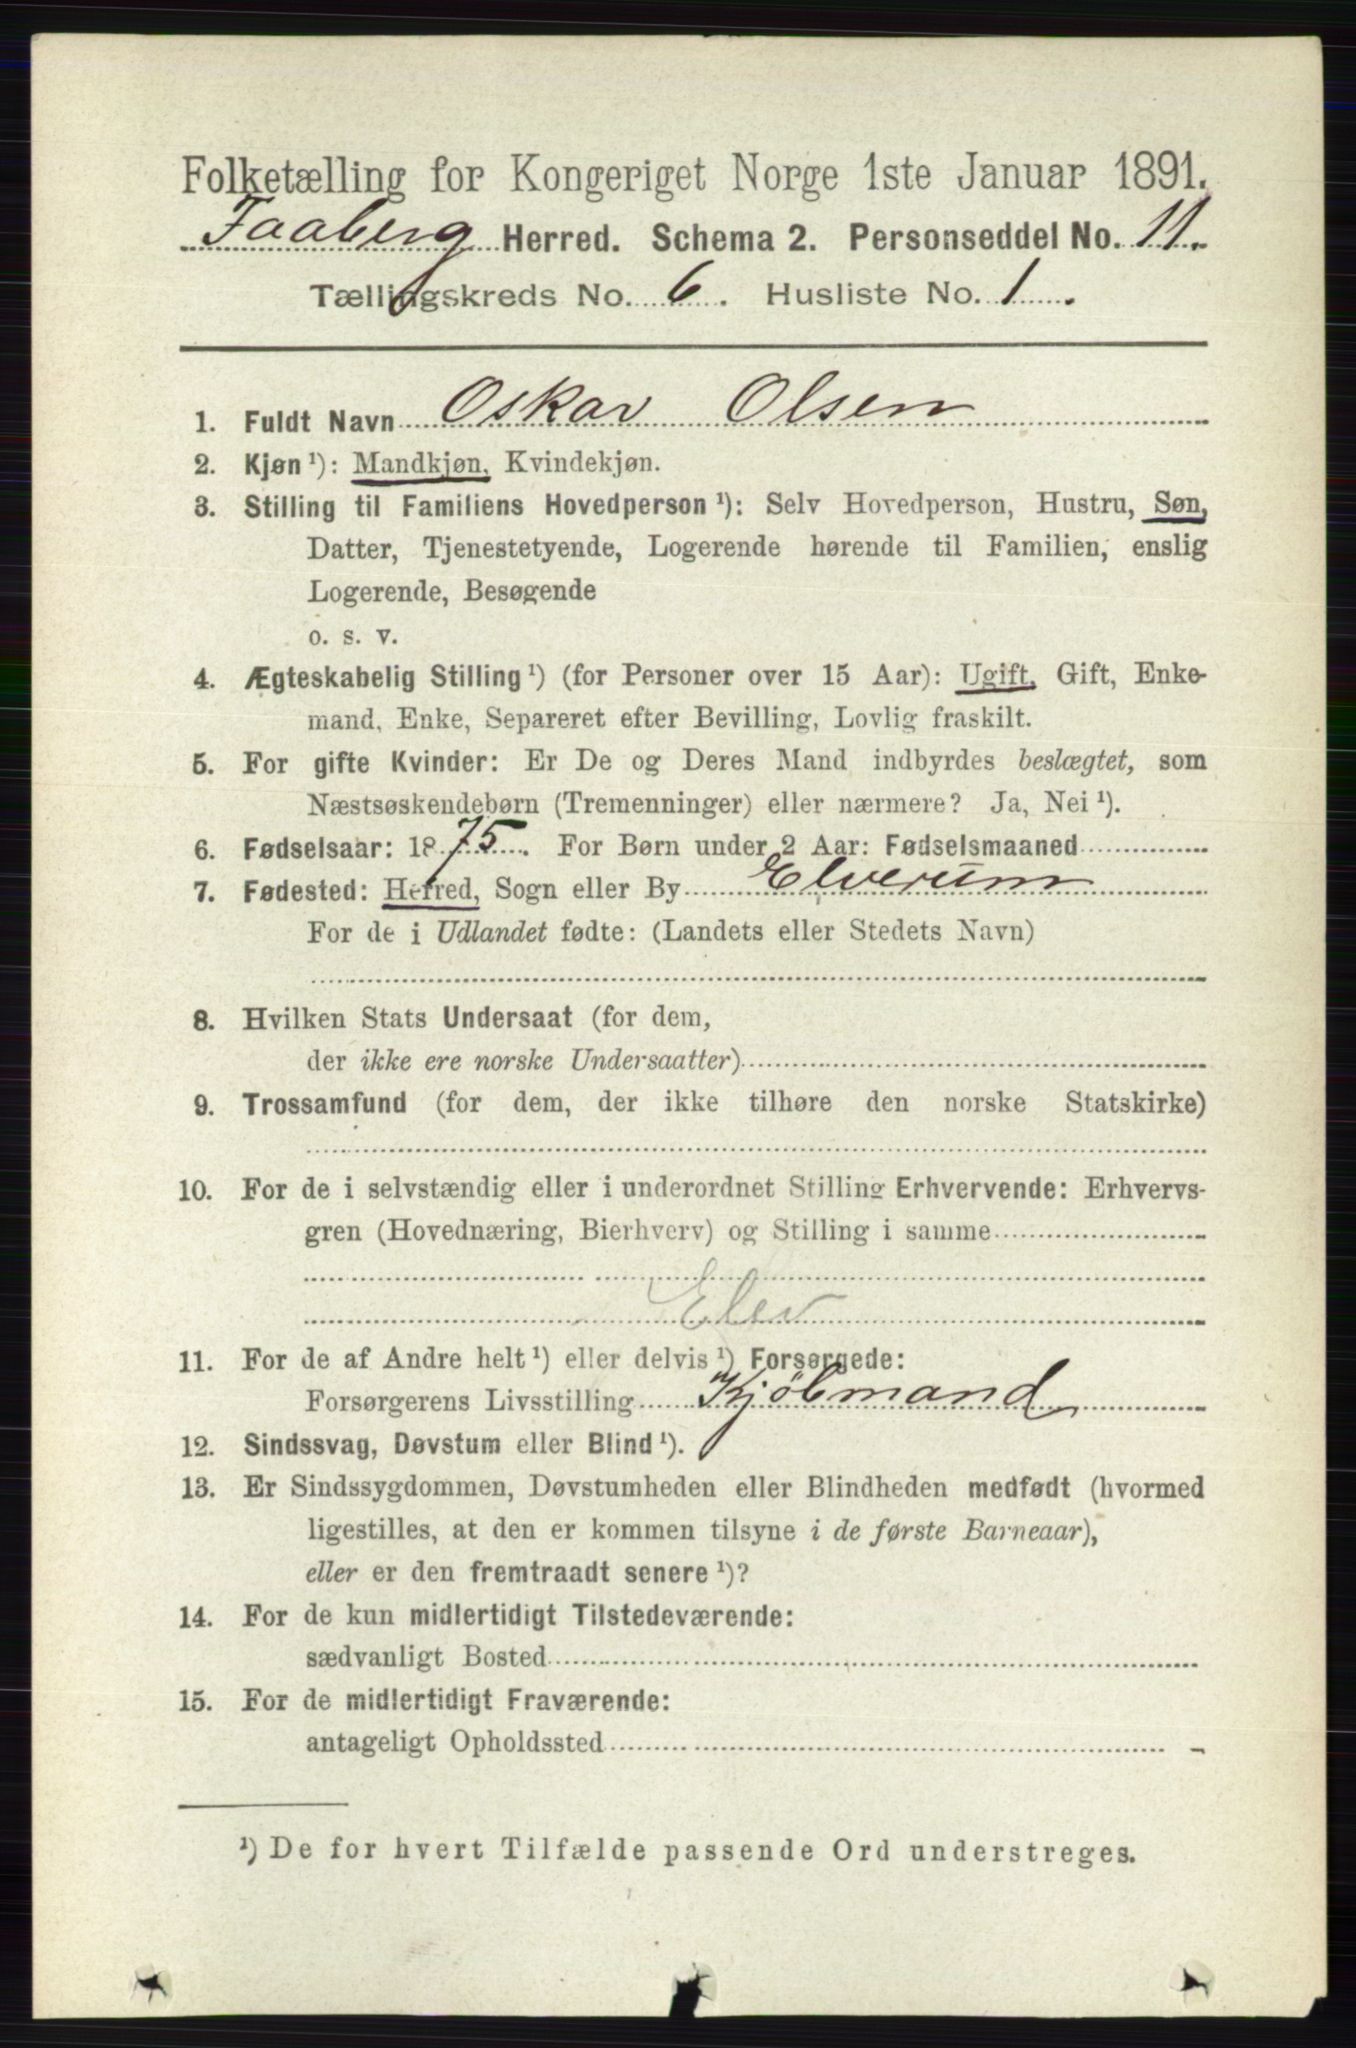 Folketælling for Kongeriget Norge 1ste Januar 1891.
Faaberg Herred. Schema 2. Personseddel No. 11.
Tællingskreds No. 6. Husliste No. 1.
1. Fuldt Navn Oskar Olsen
2. Kjøn ¹): Mandkjøn, Kvindekjøn.
3. Stilling til Familiens Hovedperson ¹): Selv Hovedperson, Hustru, Søn,
Datter, Tjenestetyende, Logerende hørende til Familien, enslig
Logerende, Besøgende
o. s. v.
4. Ægteskabelig Stilling ¹) (for Personer over 15 Aar): Ugift, Gift, Enke-
mand, Enke, Separeret efter Bevilling, Lovlig fraskilt.
5. For gifte Kvinder: Er De og Deres Mand indbyrdes beslægtet, som
Næstsøskendebørn (Tremenninger) eller nærmere? Ja, Nei ¹).
6. Fødselsaar: 1875. For Børn under 2 Aar: Fødselsmaaned
7. Fødested: Herred, Sogn eller By Elverum
For de i Udlandet fødte: (Landets eller Stedets Navn)
8. Hvilken Stats Undersaat (for dem,
der ikke ere norske Undersaatter)
9. Trossamfund (for dem, der ikke tilhøre den norske Statskirke)
10. For de i selvstændig eller i underordnet Stilling Erhvervende: Erhvervs-
gren (Hovednæring, Bierhverv) og Stilling i samme
Elev
11. For de af Andre helt ¹) eller delvis ¹) Forsørgede:
Forsørgerens Livsstilling Kjøbmand
12. Sindssvag, Døvstum eller Blind ¹).
13. Er Sindssygdommen, Døvstumheden eller Blindheden medfødt (hvormed
ligestilles, at den er kommen tilsyne i de første Barneaar),
eller er den fremtraadt senere ¹)?
14. For de kun midlertidigt Tilstedeværende:
sædvanligt Bosted
15. For de midlertidigt Fraværende:
antageligt Opholdssted
¹) De for hvert Tilfælde passende Ord understreges.